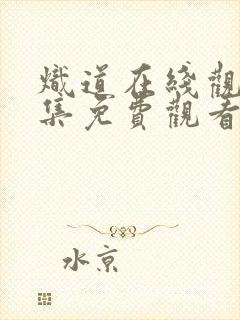 熾道在綫觀
集免費觀看
水京